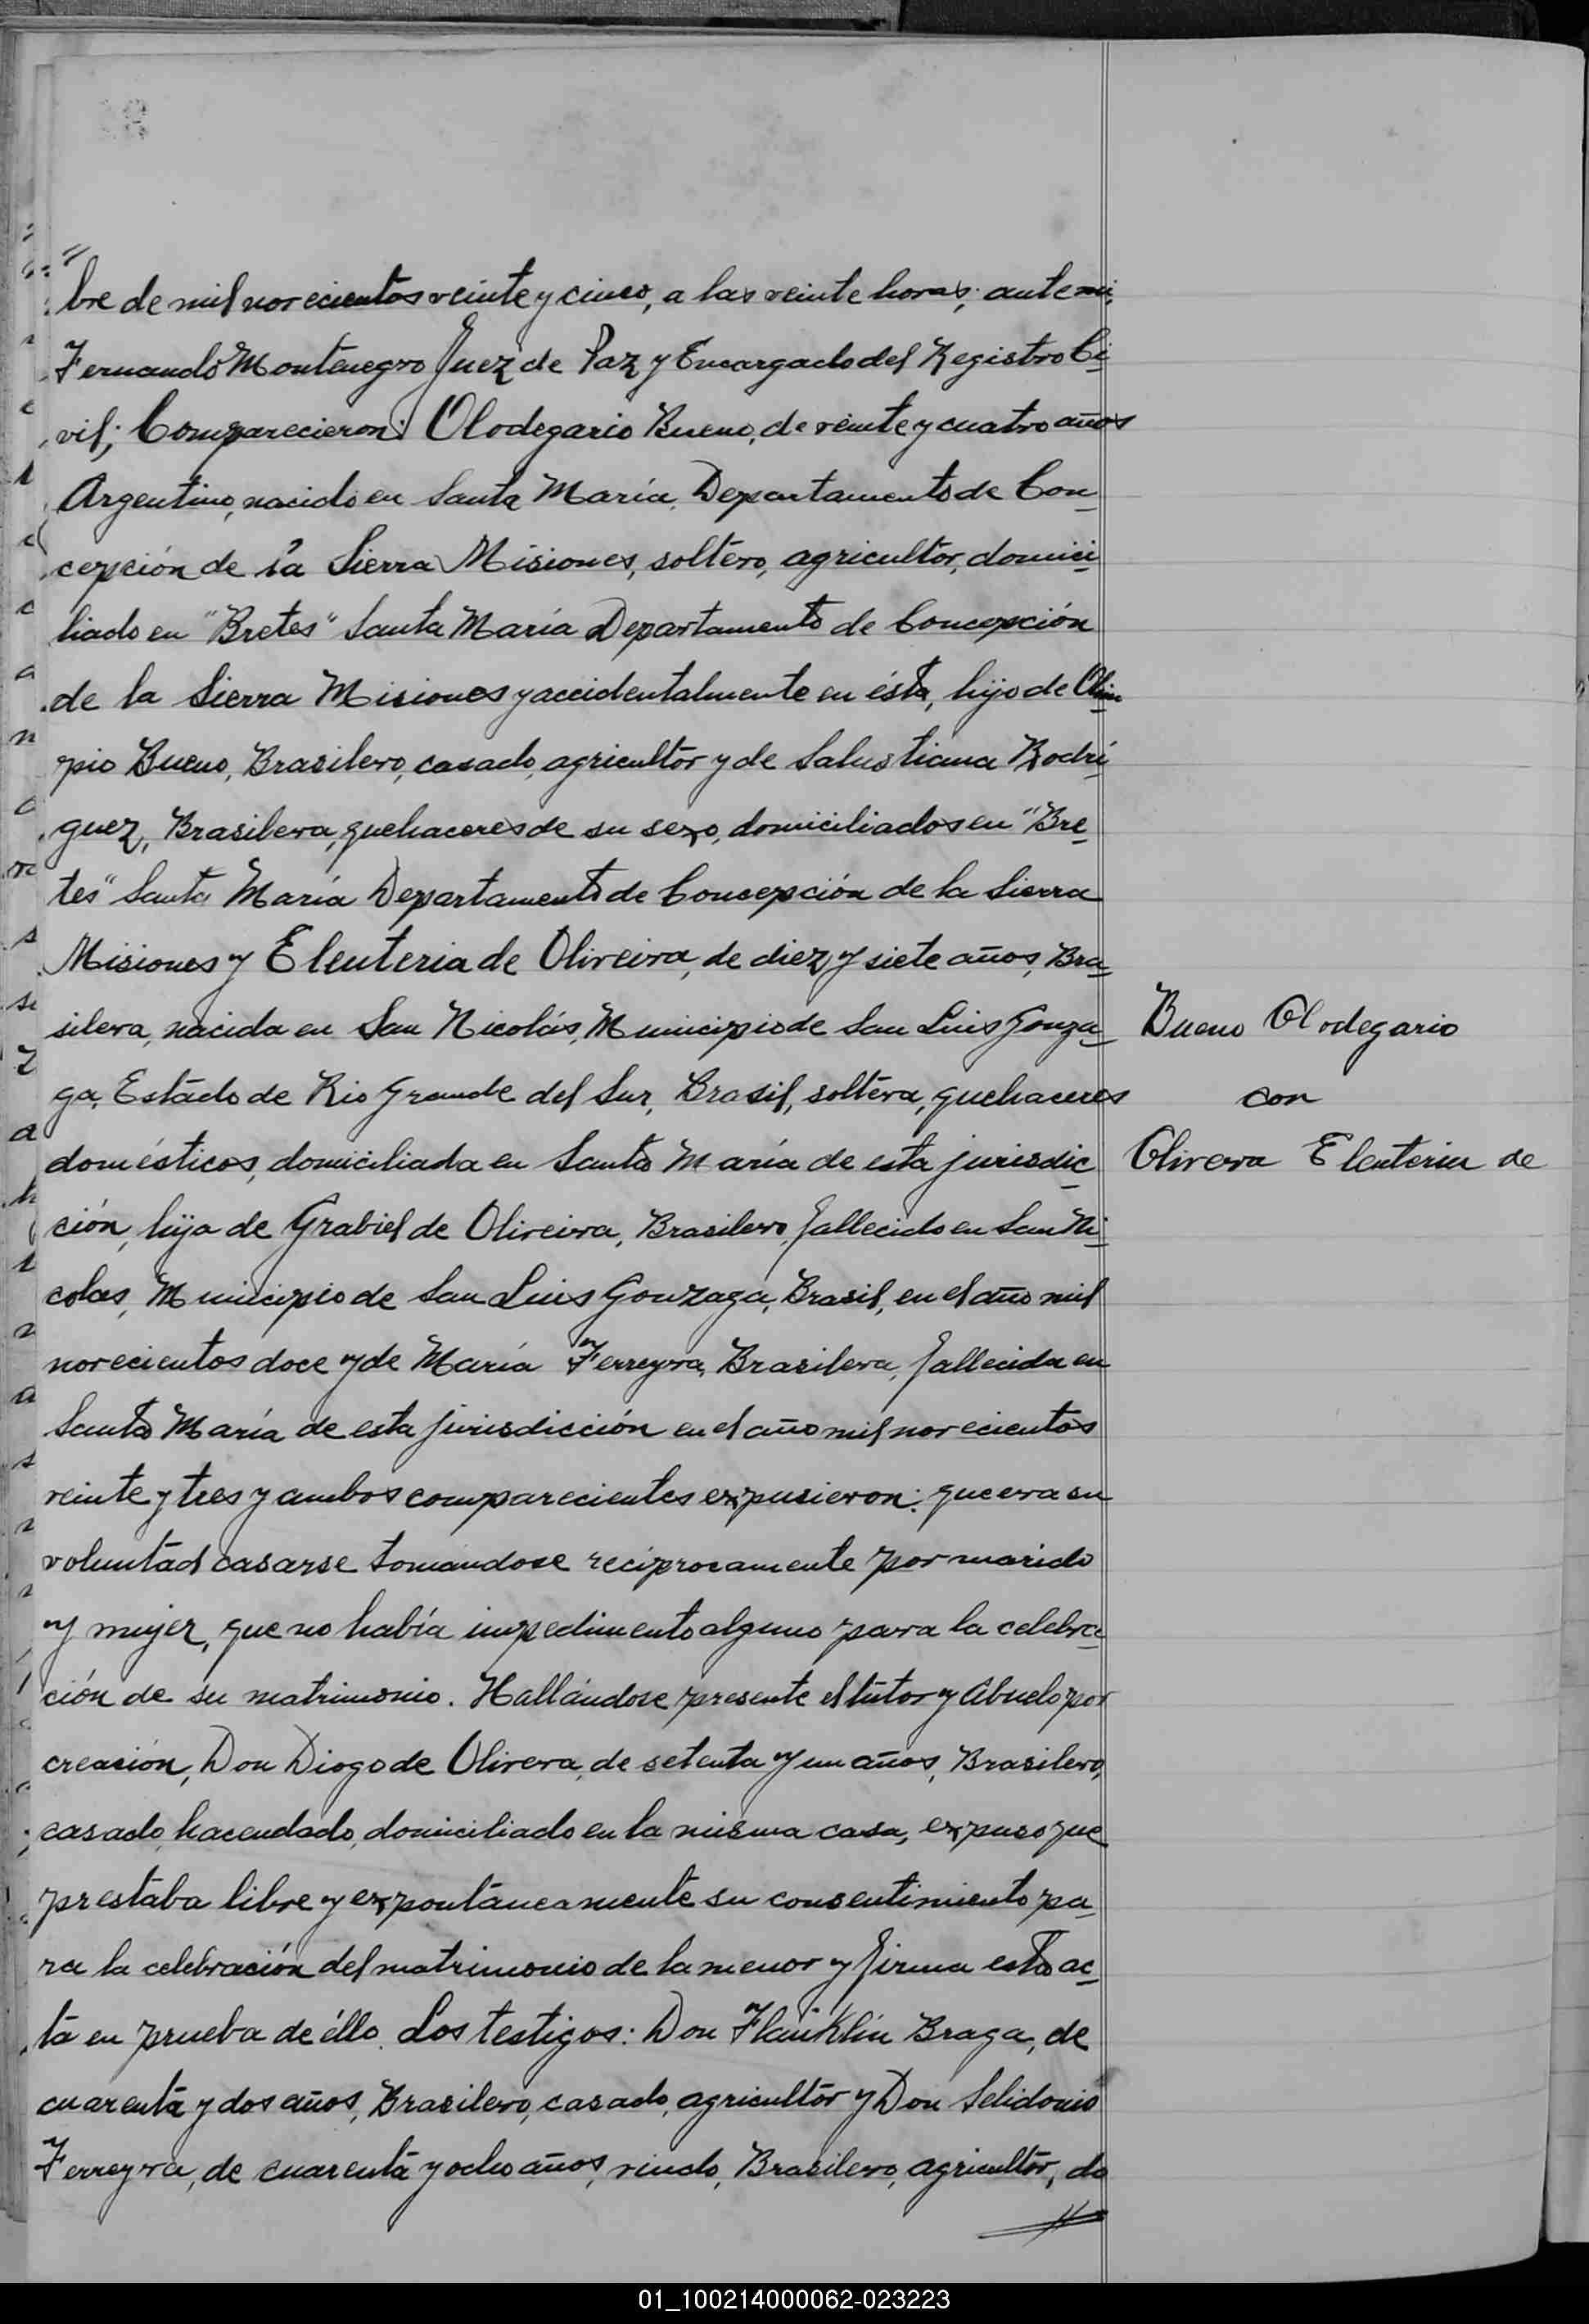 "
bre de mil novecientos veinte y cinco, a las veinte horas; ante mi,
Fernando Montenegro Juez de Paz y Encargado del Registro Ci
vil; Comparecieron: Olodegario Bueno, de veinte y cuatro años
Argentino, nacido en Santa María, Departamento de Con
cepción de la Sierra Misiones, soltero, agricultor, domici
liado en "Bretes" Santa María Departamento de Concepción
de la Sierra Misiones y accidentalmente en ésta, hijo de Olim
pio Bueno, Brasilero, casado, agricultor y de Salustiana Rodri
guez, Brasilera, quehaceres de su sexo, domiciliados en "Bre
tes" Santa María Departamento de Concepción de la Sierra
Misiones y Eleuteria de Oliveira, de diez y siete años, Bra
silera, nacida en San Nicolás, Municipio de San Luis Gonza
ga, Estado de Rio Grande del Sur, Brasil, soltera, quehaceres
domésticos, domiciliada en Santa María de esta jurisdic
ción, hija de Grabiel de Oliveira, Brasilero, fallecido en San Ni
colas, Municipio de San Luis Gonzaga, Brasil, en el año mil
novecientos doce y de María Ferreyra, Brasilera, fallecida en
Santa María de esta jurisdicción en el año mil novecientos
veinte y tres y ambos comparecientes expusieron: que era su
voluntad casarse tomandose reciprocamente por marido
y mujer, que no había impedimento alguno para la celebra
ción de su matrimonio. Hallándose presente el tutor y Abuelo por
creación, Don Diogo de Olivera, de setenta y un años, Brasilero,
casado, hacendado, domiciliado en la misma casa, expuso que
prestaba libre y expontáneamente su consentimiento pa
ra la celebración del matrimonio de la menor y firma esta ac
ta en prueba de éllo. Los testigos: Don Flanklin Braga, de
cuarenta y dos años, Brasilero, casado, agricultor y Don Selidonio
Ferreyra, de cuarenta y ocho años, viudo, Brasilero, agricultor, do
//
Bueno Olodegario
con
Olivera Eleuteria de
01_100214000062-023223